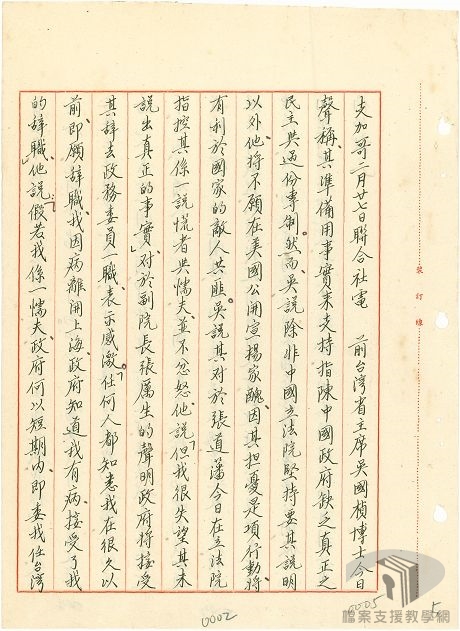 支加哥二月廿七日聯合社電　前台灣省主席吳國楨博士今日
聲稱、其準備用事實來支持指陳中國政府缺乏真正之
民主與過份專制。然而、吳說除非中國立法院堅持要其說明
以外、他將不願在美國公開宣揚家醜、因其担憂是項行動將
有利於國家的敵人共匪。吳說其对於張道藩今日在立法院
指控其係一説慌者與懦夫、並「不忿怒」他說「但我很失望其未
說出真正的事實」、对於副院長張厲生的聲明政府將接受
其辞去政務委員一職表示感激。「任何人都知悉我在很久以
前、即願辞職、我因病離開上海、政府知道我有病、接受了我
的辞職」、他說「假若我係一懦夫、政府何以短期內、即委我任台灣
裝訂線
0005
5
0002
檔案支援教學網